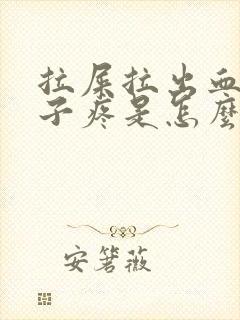 拉屎拉出血
子疼是怎麼
安箬薇